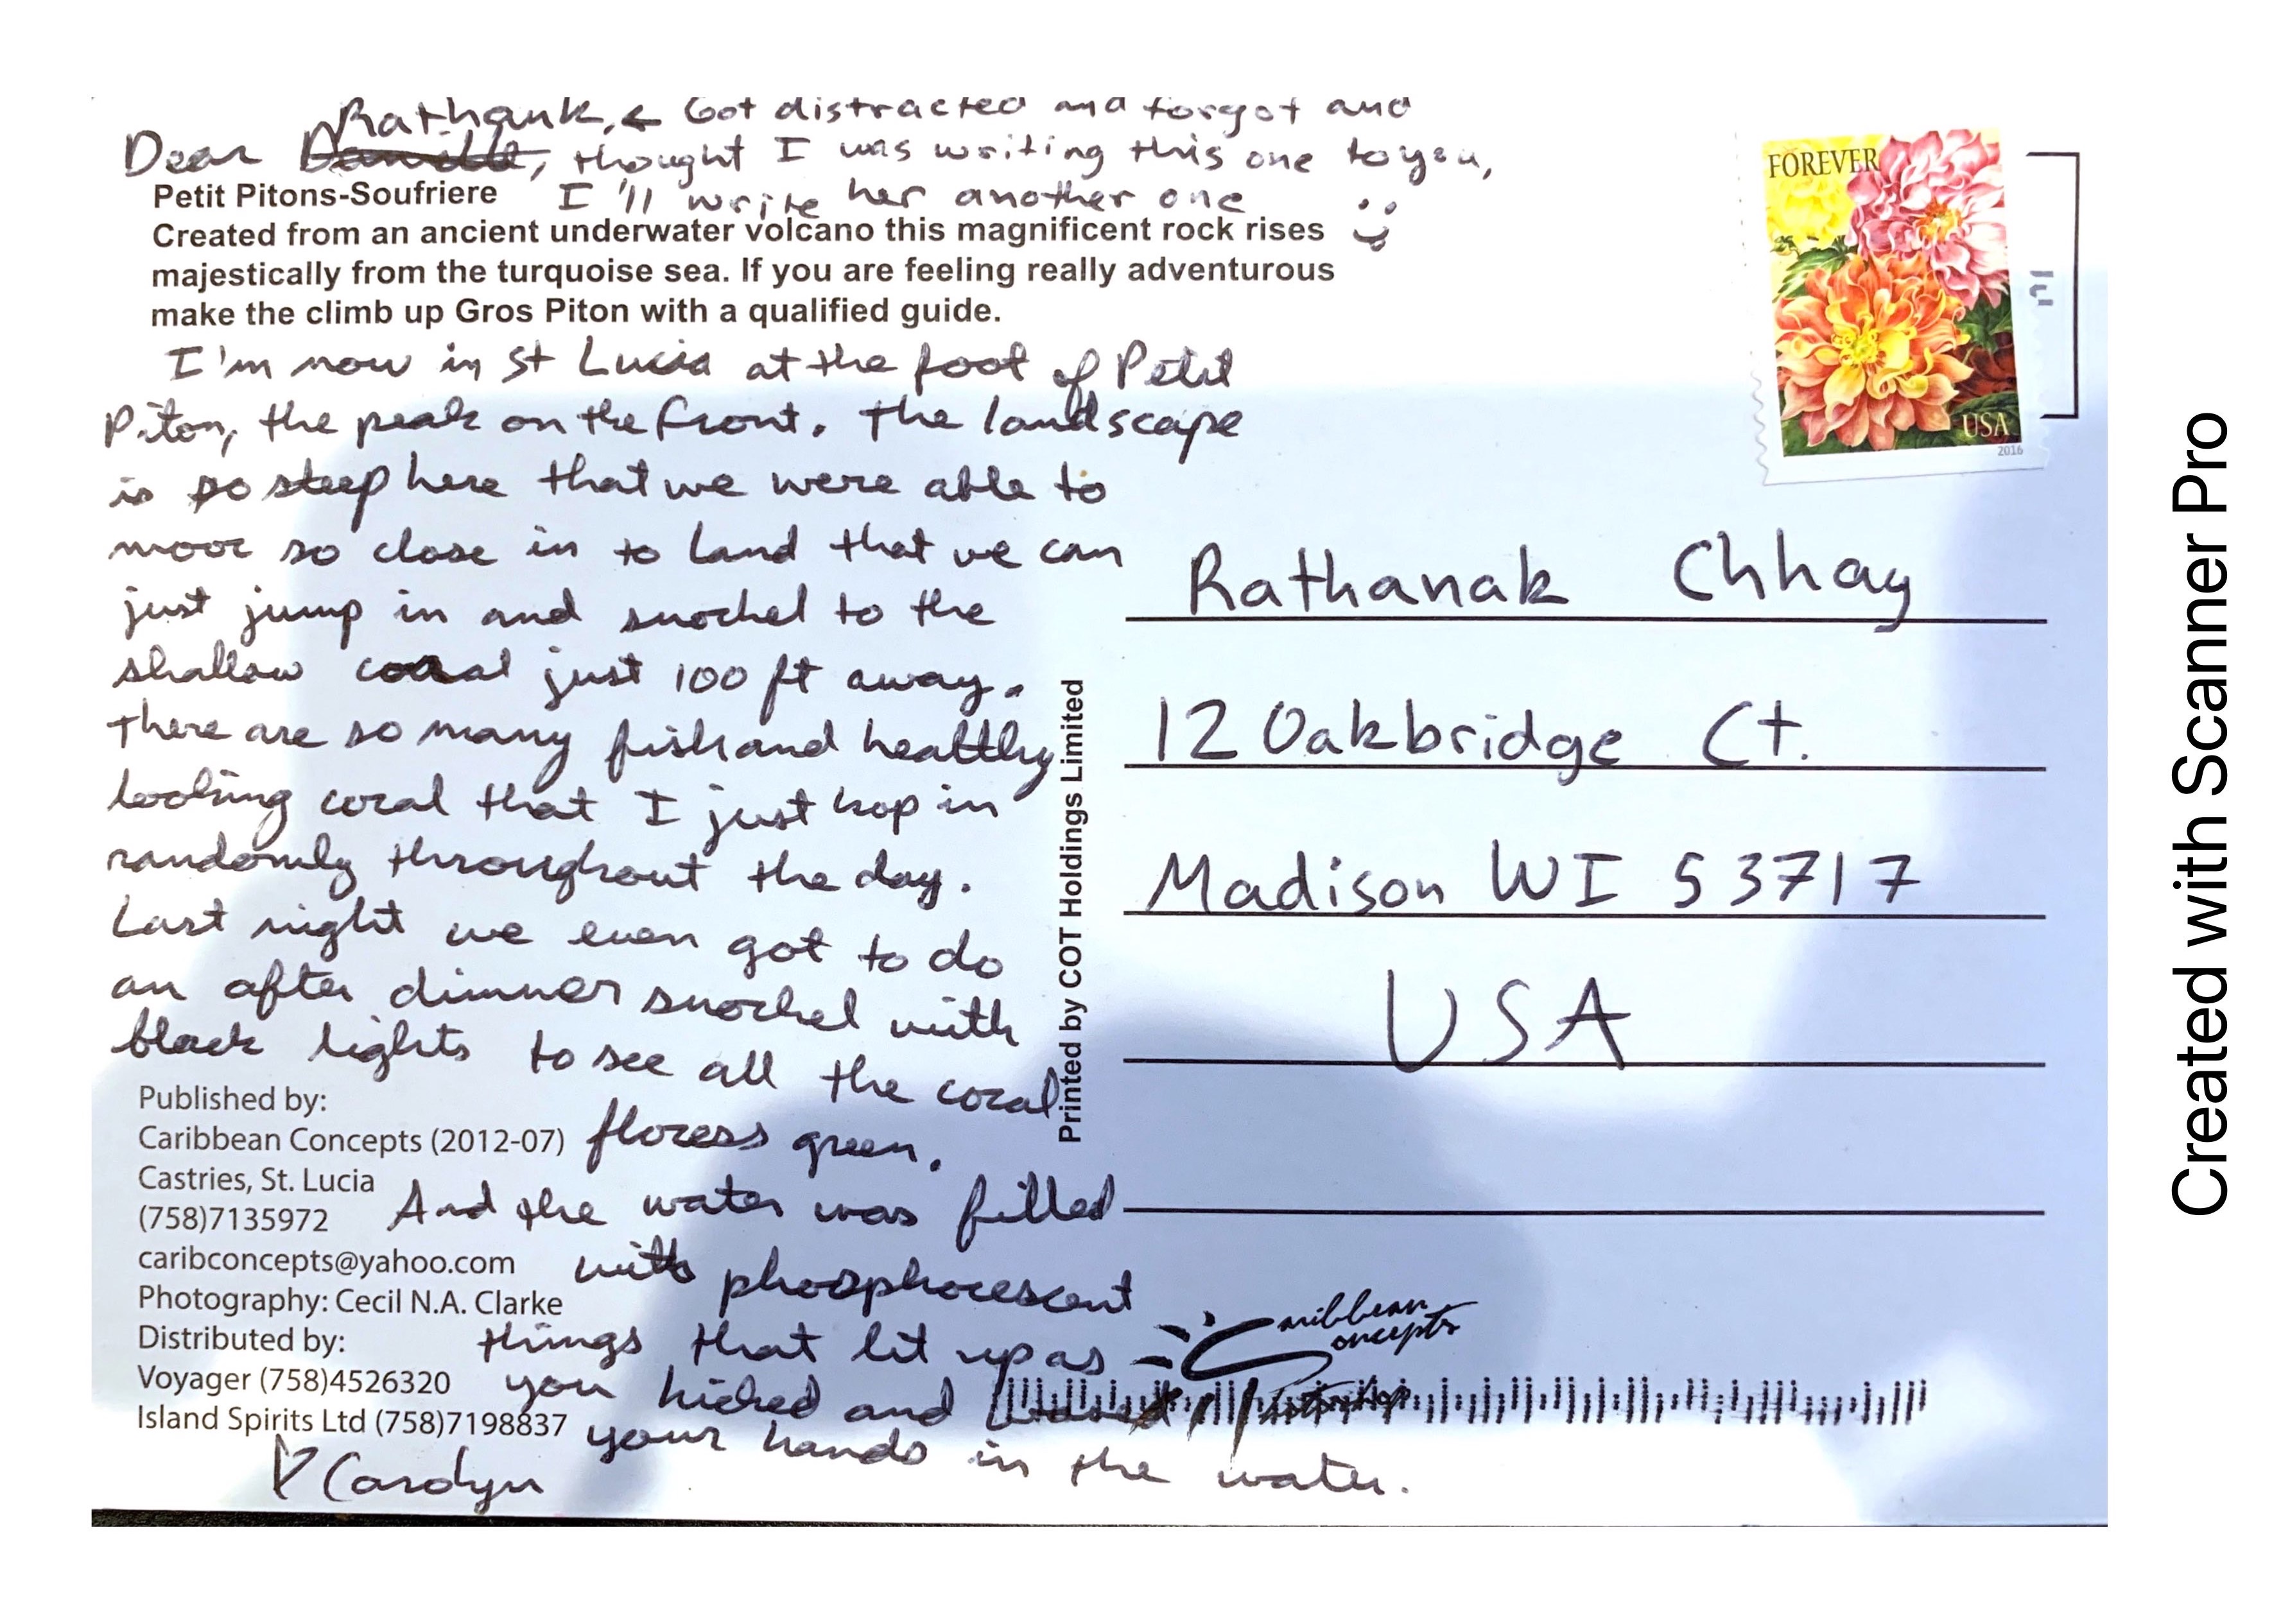 Rathanak, ← Got distracted and forgot and
Dear Danielle, thought I was writing this one to you,
Petit Pitons-Soufriere I'll write her another one
Created from an ancient underwater volcano this magnificent rock rises
majestically from the turquoise sea. If you are feeling really adventurous
make the climb up Gros Piton with a qualified guide.
I'm now in St Lucia at the foot of Petit
Piton, the peak on the front. The landscape
is so steep here that we were able to
moor so close in to land that we can
just jump in and snorkel to the
shallow coral just 100 ft away.
There are so many fish and healthy
looking coral that I just hop in
randomly throughout the day.
Last night we even got to do
an after dinner snorkel with
black lights to see all the coral
floress green.
And the water was filled
with phosphorescent
things that lit up as
you kicked and
your hands in the water.
♡ Carolyn
Published by:
Caribbean Concepts (2012-07)
Castries, St. Lucia
(758)7135972
caribconcepts@yahoo.com
Photography: Cecil N.A. Clarke
Distributed by:
Voyager (758)4526320
Island Spirits Ltd (758)7198837
Printed by COT Holdings Limited
FOREVER
USA
2016
Rathanak Chhay
12 Oakbridge Ct.
Madison WI 53717
USA
Caribbean
Concepts
Created with Scanner Pro